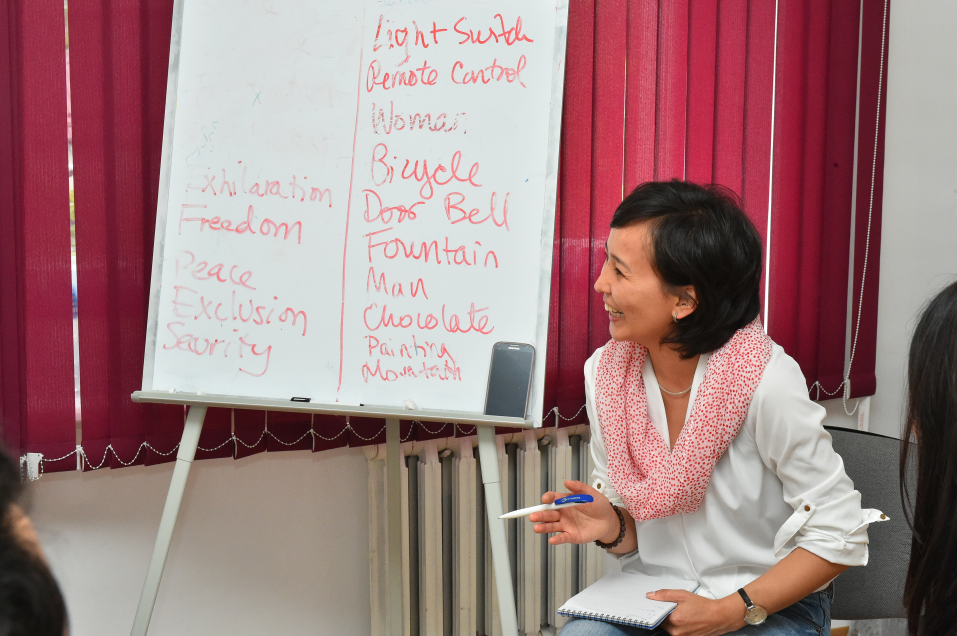 Exhilaration
Freedom
Peace
Exclusion
Security
Light Switch
Remote Control
Woman
Bicycle
Door Bell
Fountain
Man
Chocolate
Painting
Mountain